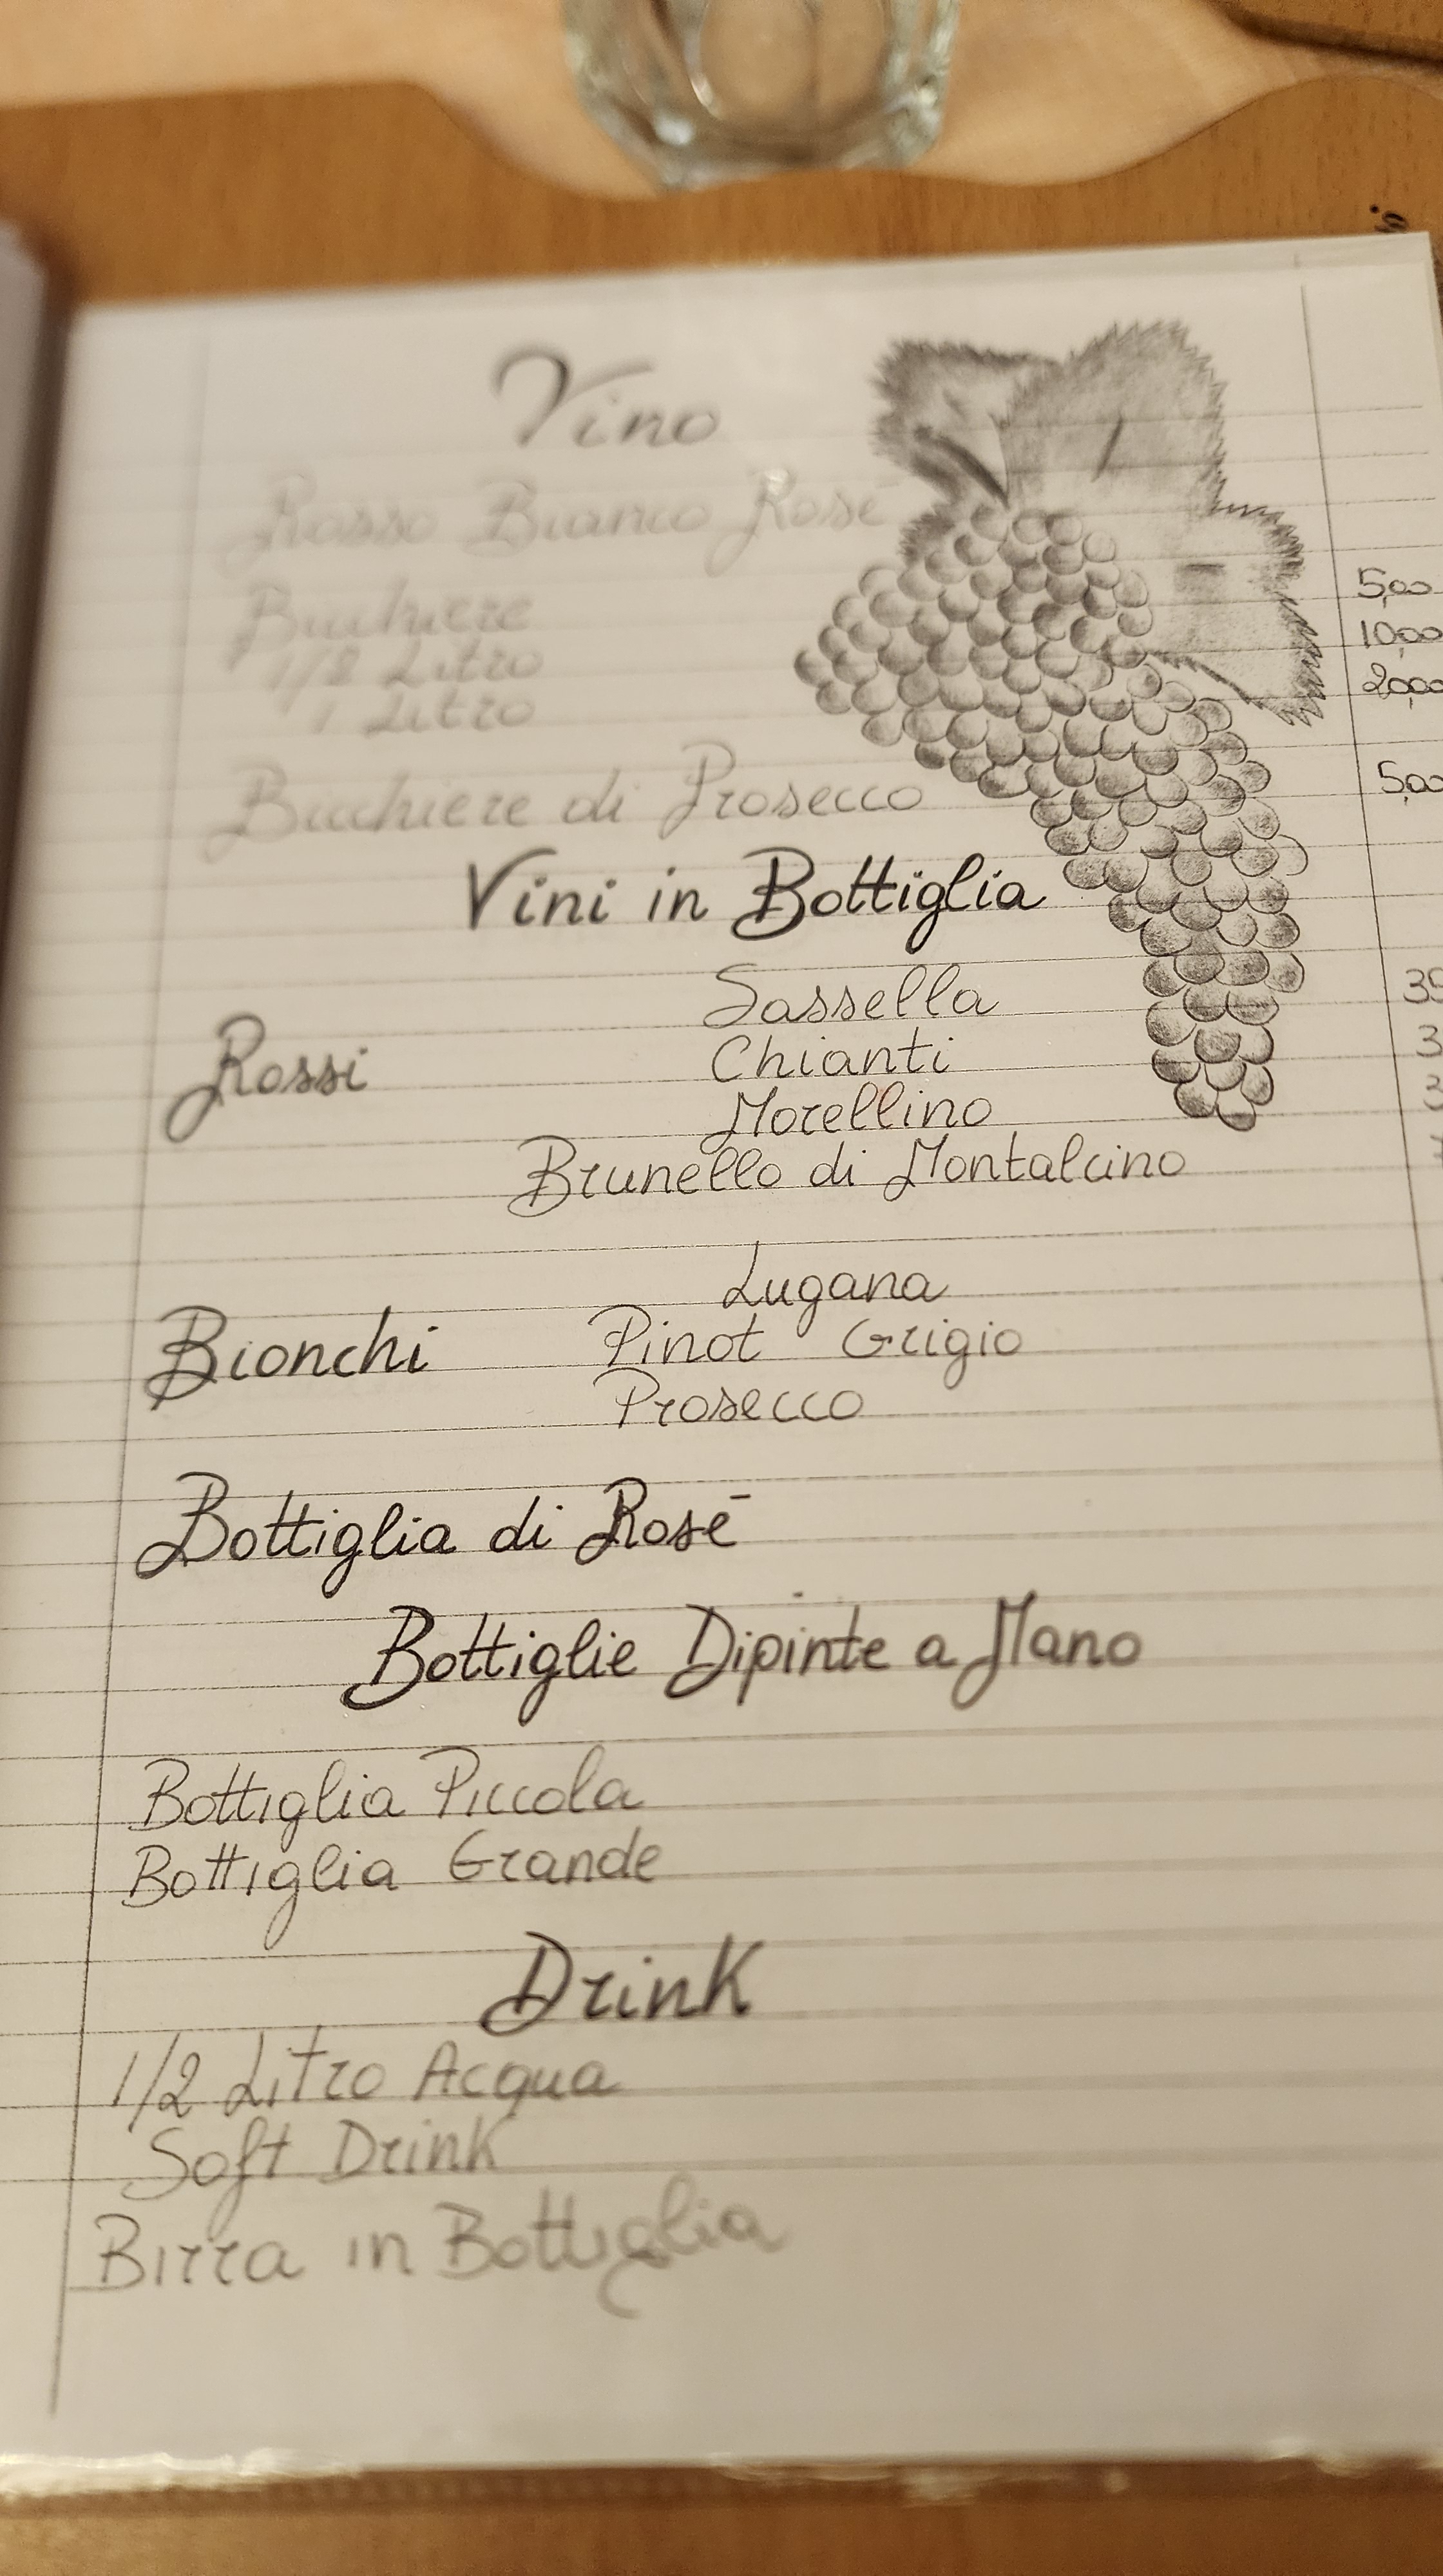 Vino
Rosso Bianco Rosē
Bicchiere 5,00
1/2 Litro 10,00
1 Litro 20,00
Bicchiere di Prosecco 5,00
Vini in Bottiglia
Sassella
Chianti
Rossi
Morellino
Brunello di Montalcino
Lugana
Bionchi Pinot Grigio
Prosecco
Bottiglia di Rosē
Bottiglie Dipinte a Mano
Bottiglia Piccola
Bottiglia Grande
Drink
1/2 Litro Acqua
Soft Drink
Birra in Bottiglia